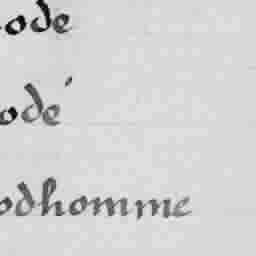 ode
odé
odhomme